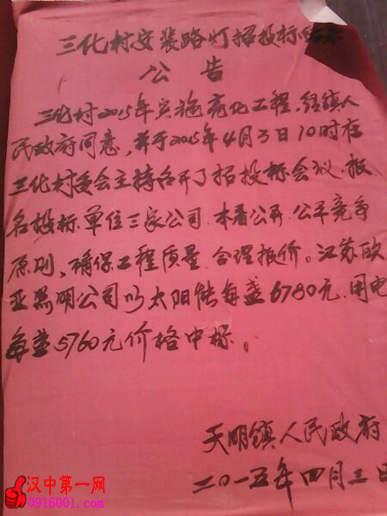 三化村安装路灯招投标结果
公告
三化村2015年实施亮化工程,经镇人
民政府同意,并于2015年4月3日10时在
三化村委会主持召开了招投标会议,报
名投标单位三家公司.本着公开.公平竞争
原则,确保工程质量.合理报价。江苏欧
亚照明公司以太阳能每盏6780元.用电
每盏5760元价格中标。
天明镇人民政府
二〇一五年四月三日
汉中第一网
0916001.com